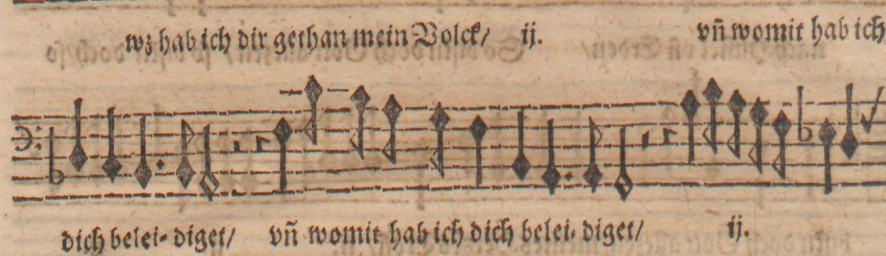 wz hab ich dir gethan mein Volck/ ij. vñ womit hab ich
dich belei- diget/ vñ womit hab ich dich belei- diget/ ij.